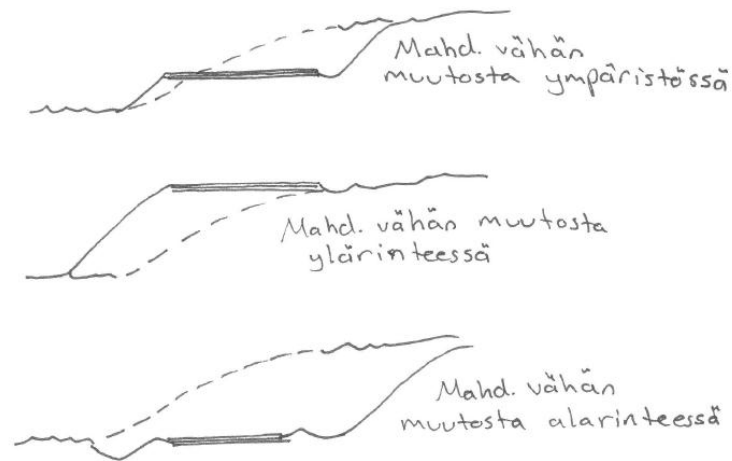 Mahd. vähän
muutosta ympäristössä
Mahd. vähän muutosta
ylärinteessä
Mahd. vähän
muutosta alarinteessä